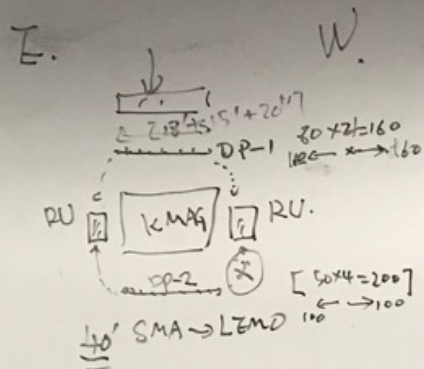 E. W.
DP-1
80 x 2 = 160
160
RU KMAG RU.
DP-2
[50x4=200]
100 100
40' SMA → LEMO